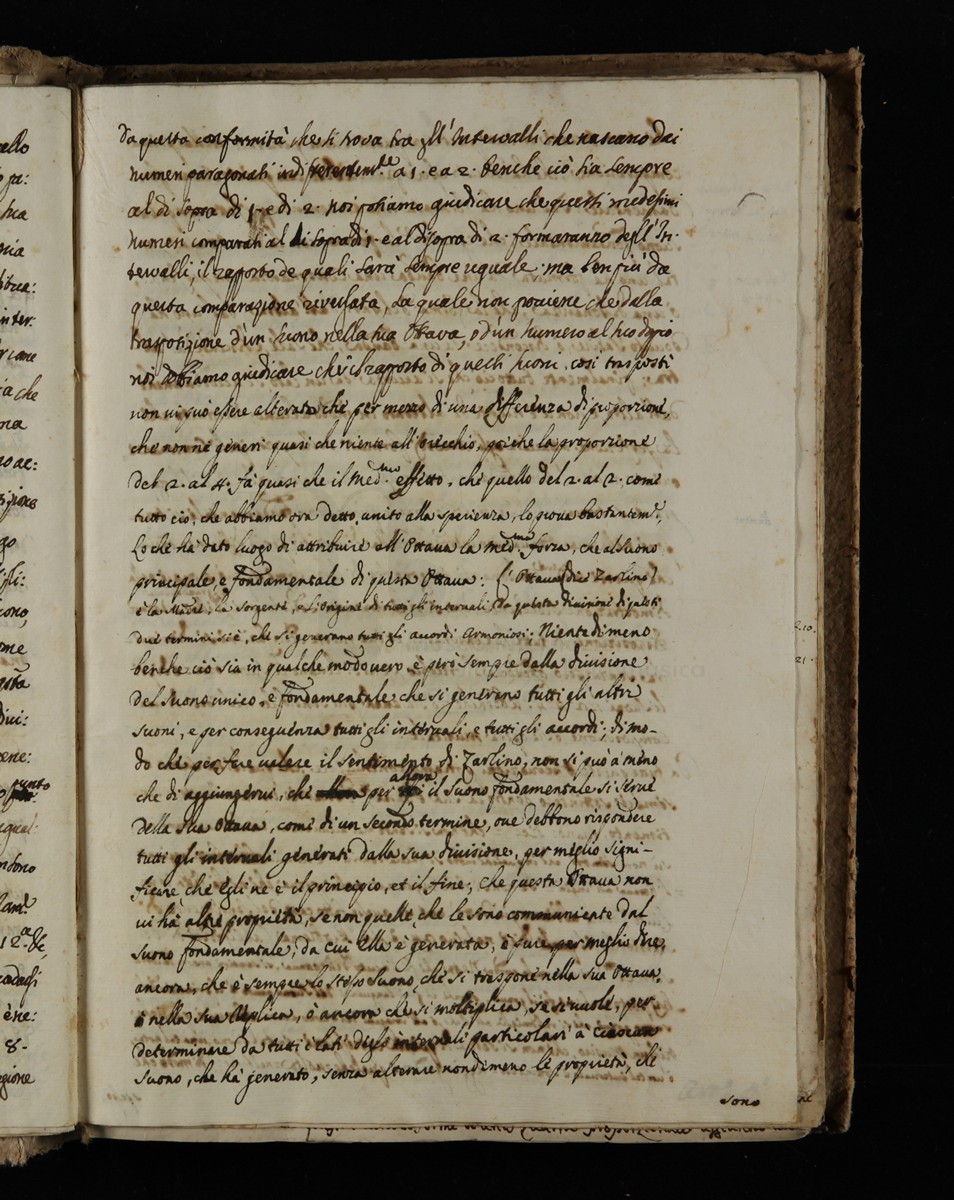 Da questa conformità che si trova tra gl' Intervalli che nascano dai
numeri paragonati indifferentem.te a 1. e a 2. benche ciò sia sempre
al di sopra di 1. e di 2. noi potiamo giudicare che questi medesimi
numeri comparati al di sopra di 1. e al di sopra di 2. formaranno degl' In-
tervalli, il rapporto de quali sarà sempre uguale. ma ben piu' da
questa comparazione riversata, la quale non proviene che dalla
trasposizione d'un suono nella sua Ottava, o d'un numero al suo dopio
noi dobbiamo giudicare che il rapporto di questi suoni. così trasposti
non vi può essere alterato che per mezzo di una differenza di proporzione,
che non ne generi quasi che niente all' orecchio, poi che la proporzione
del 2. al 4. fà quasi che il med.mo effetto, che quello del 2. al 2. come
tutto ciò, che abbiamo ora detto, unito alla sperienza, lo prova bastantem.e,
Lo che hà dato luogo di attribuire all' Ottava la med.ma forza, che al suono
principale, e fondamentale di questa Ottava: (l' Ottava (dice Zarlino)
è la Madre, la sorgente, e l'origine di tutti gli intervalli, da questa divisione di questi
due termini, si è, che si generano tutti gli accordi Armoniosi; Niente di meno
benche ciò sia in qualche modo vero, è però sempre dalla divisione
del suono unico, e fondamentale che si generano tutti gli altri
suoni, e per conseguenza tutti gli intervali, e tutti gli accordi; di mo-
do che per fare valere il sentimento di Zarlino, non si può a meno
che di aggiungervi, che per allora il suono fondamentale si serve
della sua Ottava, come di un secondo termine, ove debbono rispondere
tutti gli intervali generati dalla sua divisione, per meglio signi-
ficare che Egli ne è il principio, et il fine; che questa Ottava non
vi hà altre proprietà, se non quelle, che le sono communicate dal
suono fondamentale, da cui Ella è generata, ò sia per meglio dire,
ancora, che è sempre lo stesso suono, che si traspone nella sua Ottava,
ò nella sua Replica, ò ancora che si moltiplica, se si vuole, per
determinare da tutti i lati degli intervali particolari à ciascun
suono, che hà generato, senza alterare nondimeno le proprietà, che
sono